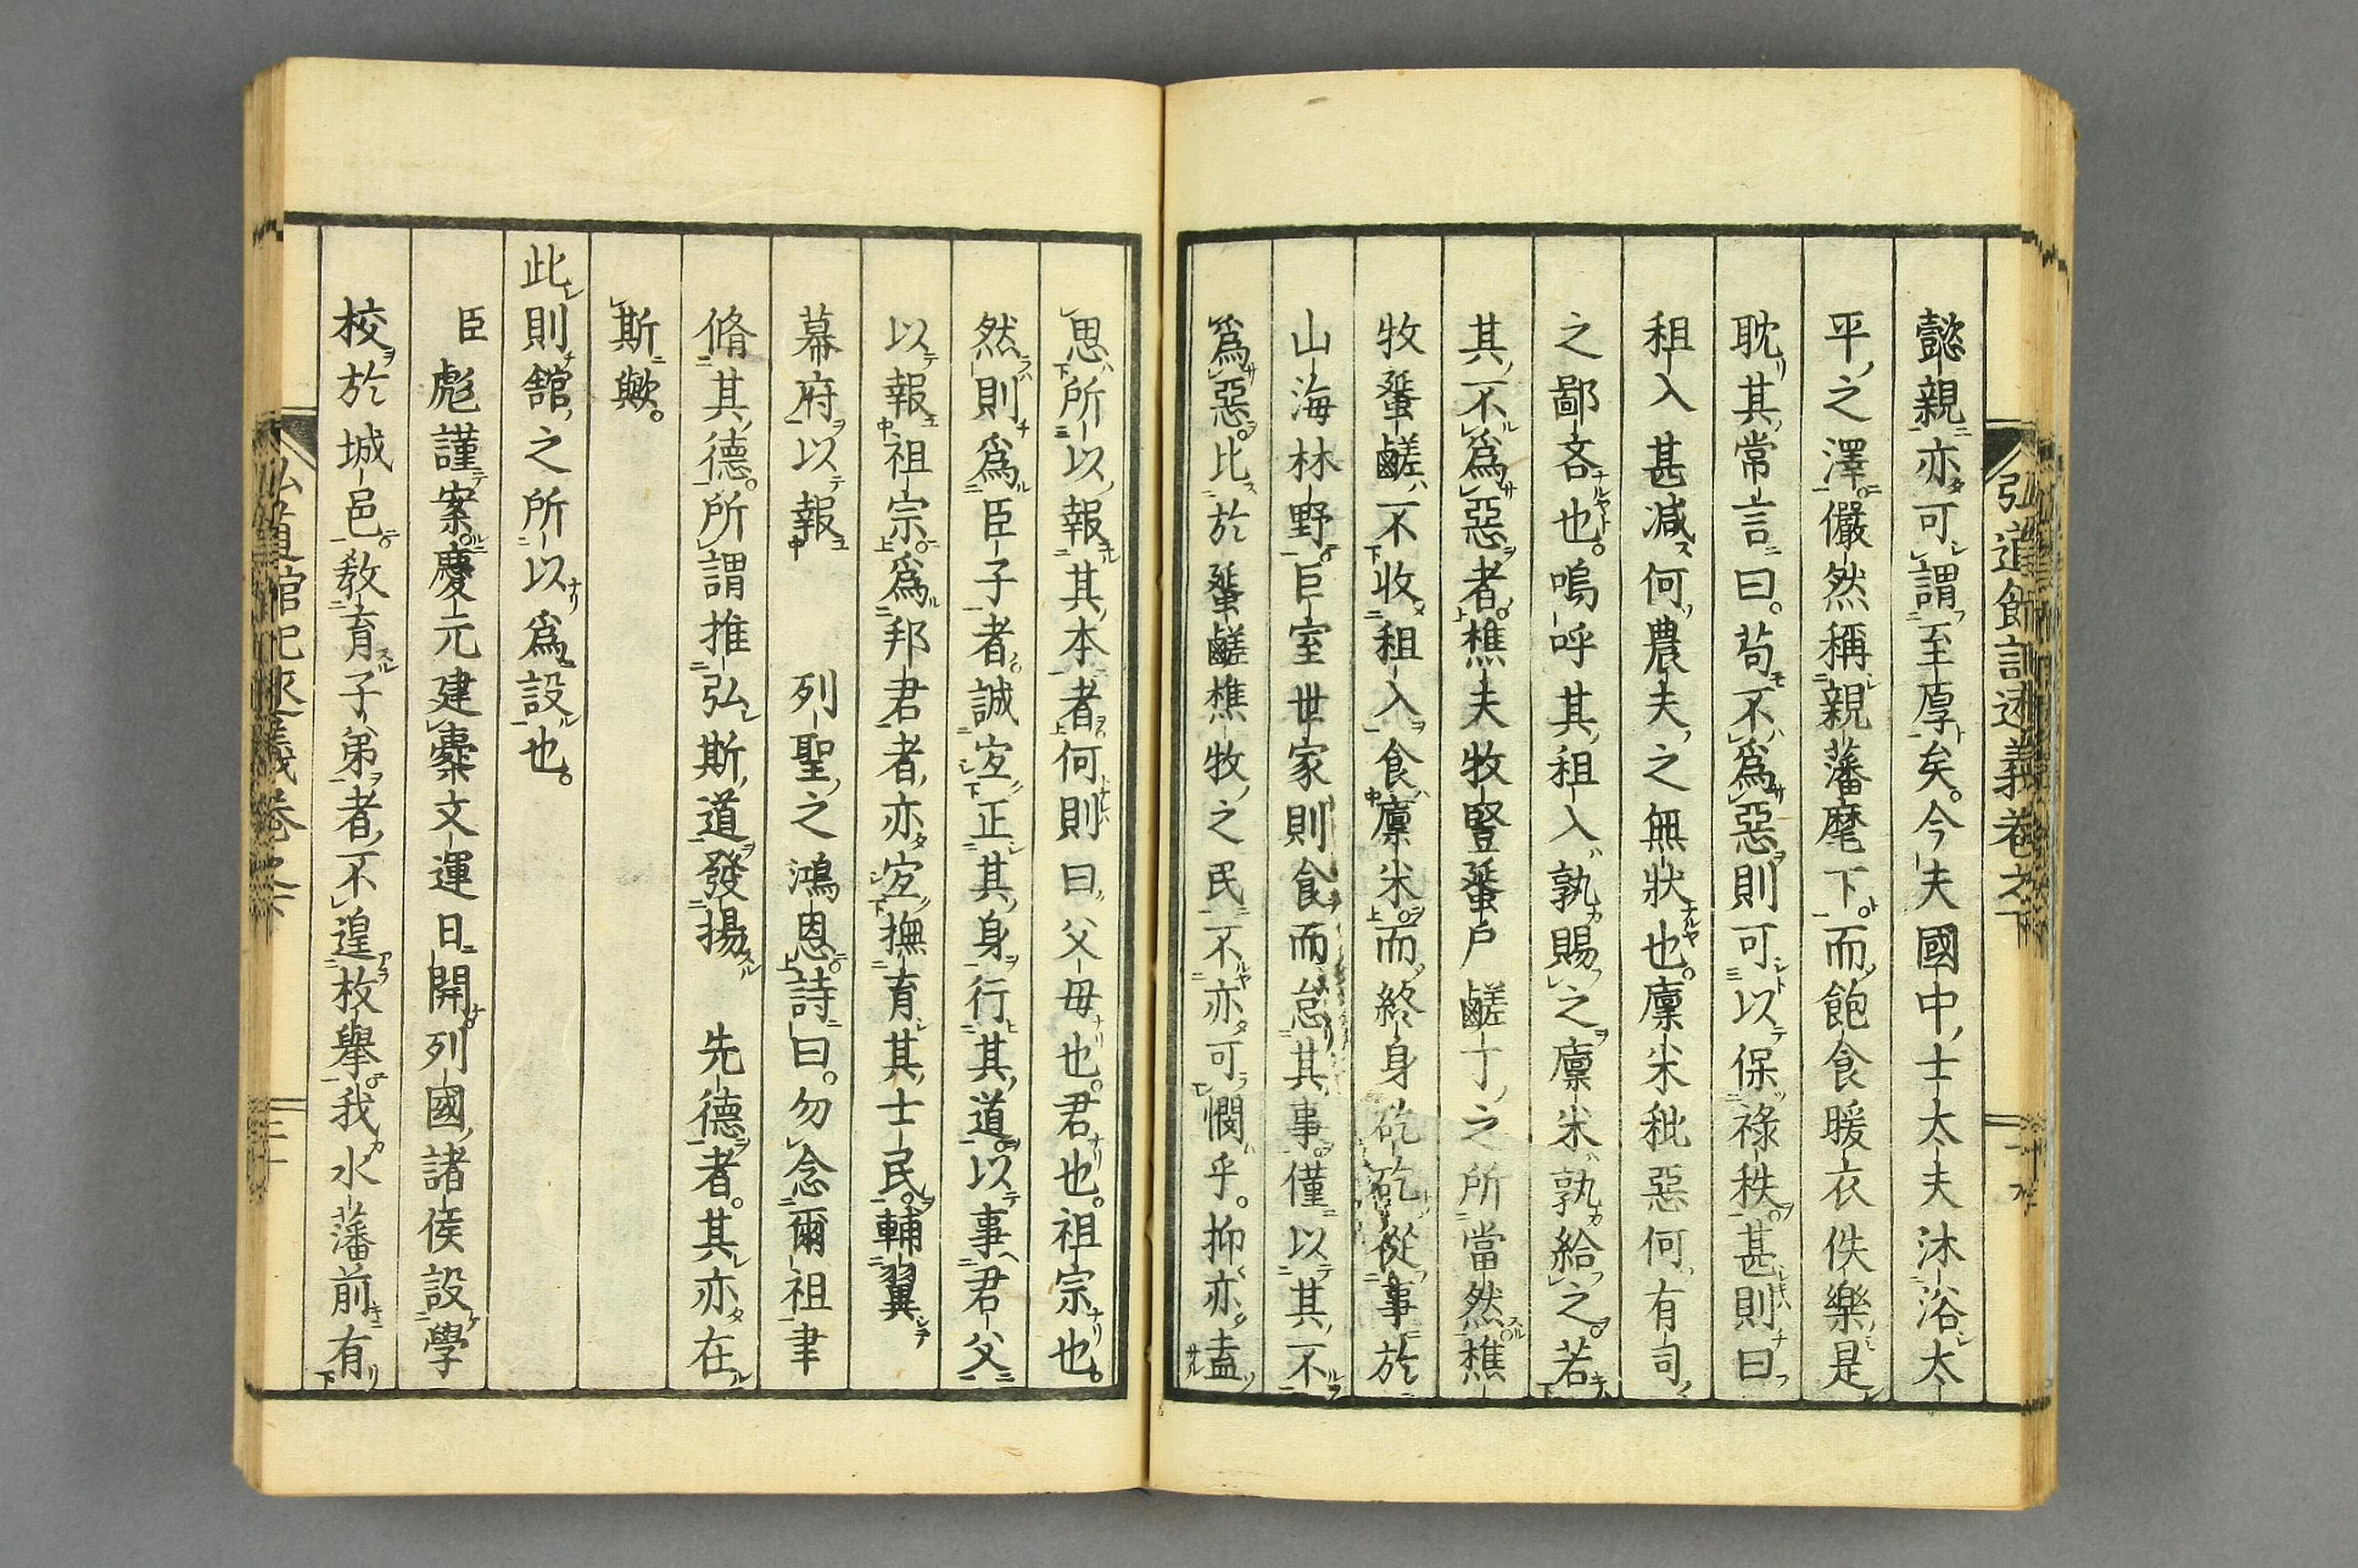 弘道館記述義卷之下
懿親亦可謂至厚矣。今夫國中士太夫沐浴太
平之澤儼然稱親藩麾下。而飽食暖衣佚樂是
耽其常言曰。苟不爲惡則可以保祿秩。甚則曰
租入甚減何農夫之無狀也。廩米秕惡何有司
之鄙吝也。嗚呼其租入孰賜之廩米孰給之。若
其不爲惡者。樵夫牧豎蜑戶鹺丁之所當然。樵
牧蜑鹺不收租入食廩米。而終身矻矻從事於
山海林野。巨室世家則食而怠其事。僅以其不
爲惡。比於蜑鹺樵牧之民不亦可憫乎。抑亦盍
思所以報其本者。何則曰父母也。君也。祖宗也。
然則爲臣子者。誠宜正其身行其道。以事君父
以報祖宗。爲邦君者亦宜撫育其士民。輔翼
幕府以報　列聖之鴻恩。詩曰。勿念爾祖聿
脩其德。所謂推弘斯道發揚　先德者。其亦在
斯歟。
此則館之所以爲設也。
臣彪謹案。慶元建櫜文運日開。列國諸侯設學
校於城邑。敎育子弟者不遑枚擧。我水藩前有
弘道館記述義卷之下